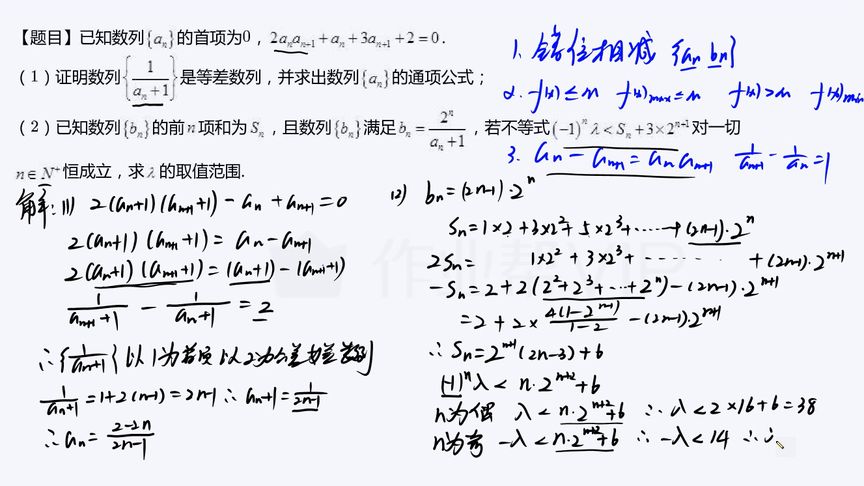 【题目】已知数列{aₙ}的首项为0，2aₙaₙ₊₁+aₙ+3aₙ₊₁+2=0.
（1）证明数列{1/(aₙ+1)}是等差数列，并求出数列{aₙ}的通项公式；
（2）已知数列{bₙ}的前n项和为Sₙ，且数列{bₙ}满足bₙ=2ⁿ/(aₙ+1)，若不等式(-1)ⁿλ<Sₙ+3×2ⁿ⁺¹对一切
n∈N⁺恒成立，求λ的取值范围.
1. 错位相减 {aₙ bₙ}
2. f(x)≤m f(x)max=m f(x)>m f(x)min
3. aₙ-aₙ₊₁=aₙaₙ₊₁ 1/aₙ₊₁-1/aₙ=1
解:(1) 2(aₙ+1)(aₙ₊₁+1)-aₙ+aₙ₊₁=0
2(aₙ+1)(aₙ₊₁+1)=aₙ-aₙ₊₁
2(aₙ+1)(aₙ₊₁+1)=(aₙ+1)-(aₙ₊₁+1)
1/(aₙ₊₁+1)-1/(aₙ+1)=2
∴{1/(aₙ+1)}以1为首项以2为公差等差数列
1/(aₙ+1)=1+2(n-1)=2n-1∴aₙ+1=1/(2n-1)
∴aₙ=(2-2n)/(2n-1)
(2) bₙ=(2n-1)·2ⁿ
Sₙ=1×2+3×2²+5×2³+……+(2n-1)·2ⁿ
2Sₙ= 1×2²+3×2³+…… +(2n-1)·2ⁿ⁺¹
-Sₙ=2+2(2²+2³+…+2ⁿ)-(2n-1)·2ⁿ⁺¹
=2+2×4(1-2ⁿ⁻¹)/(1-2)-(2n-1)·2ⁿ⁺¹
∴Sₙ=2ⁿ⁺¹(2n-3)+6
(-1)ⁿλ<n·2ⁿ⁺²+6
n为偶 λ<n·2ⁿ⁺²+6 ∴λ<2×16+6=38
n为奇 -λ<n·2ⁿ⁺²+6 ∴-λ<14 ∴
作业帮VIP